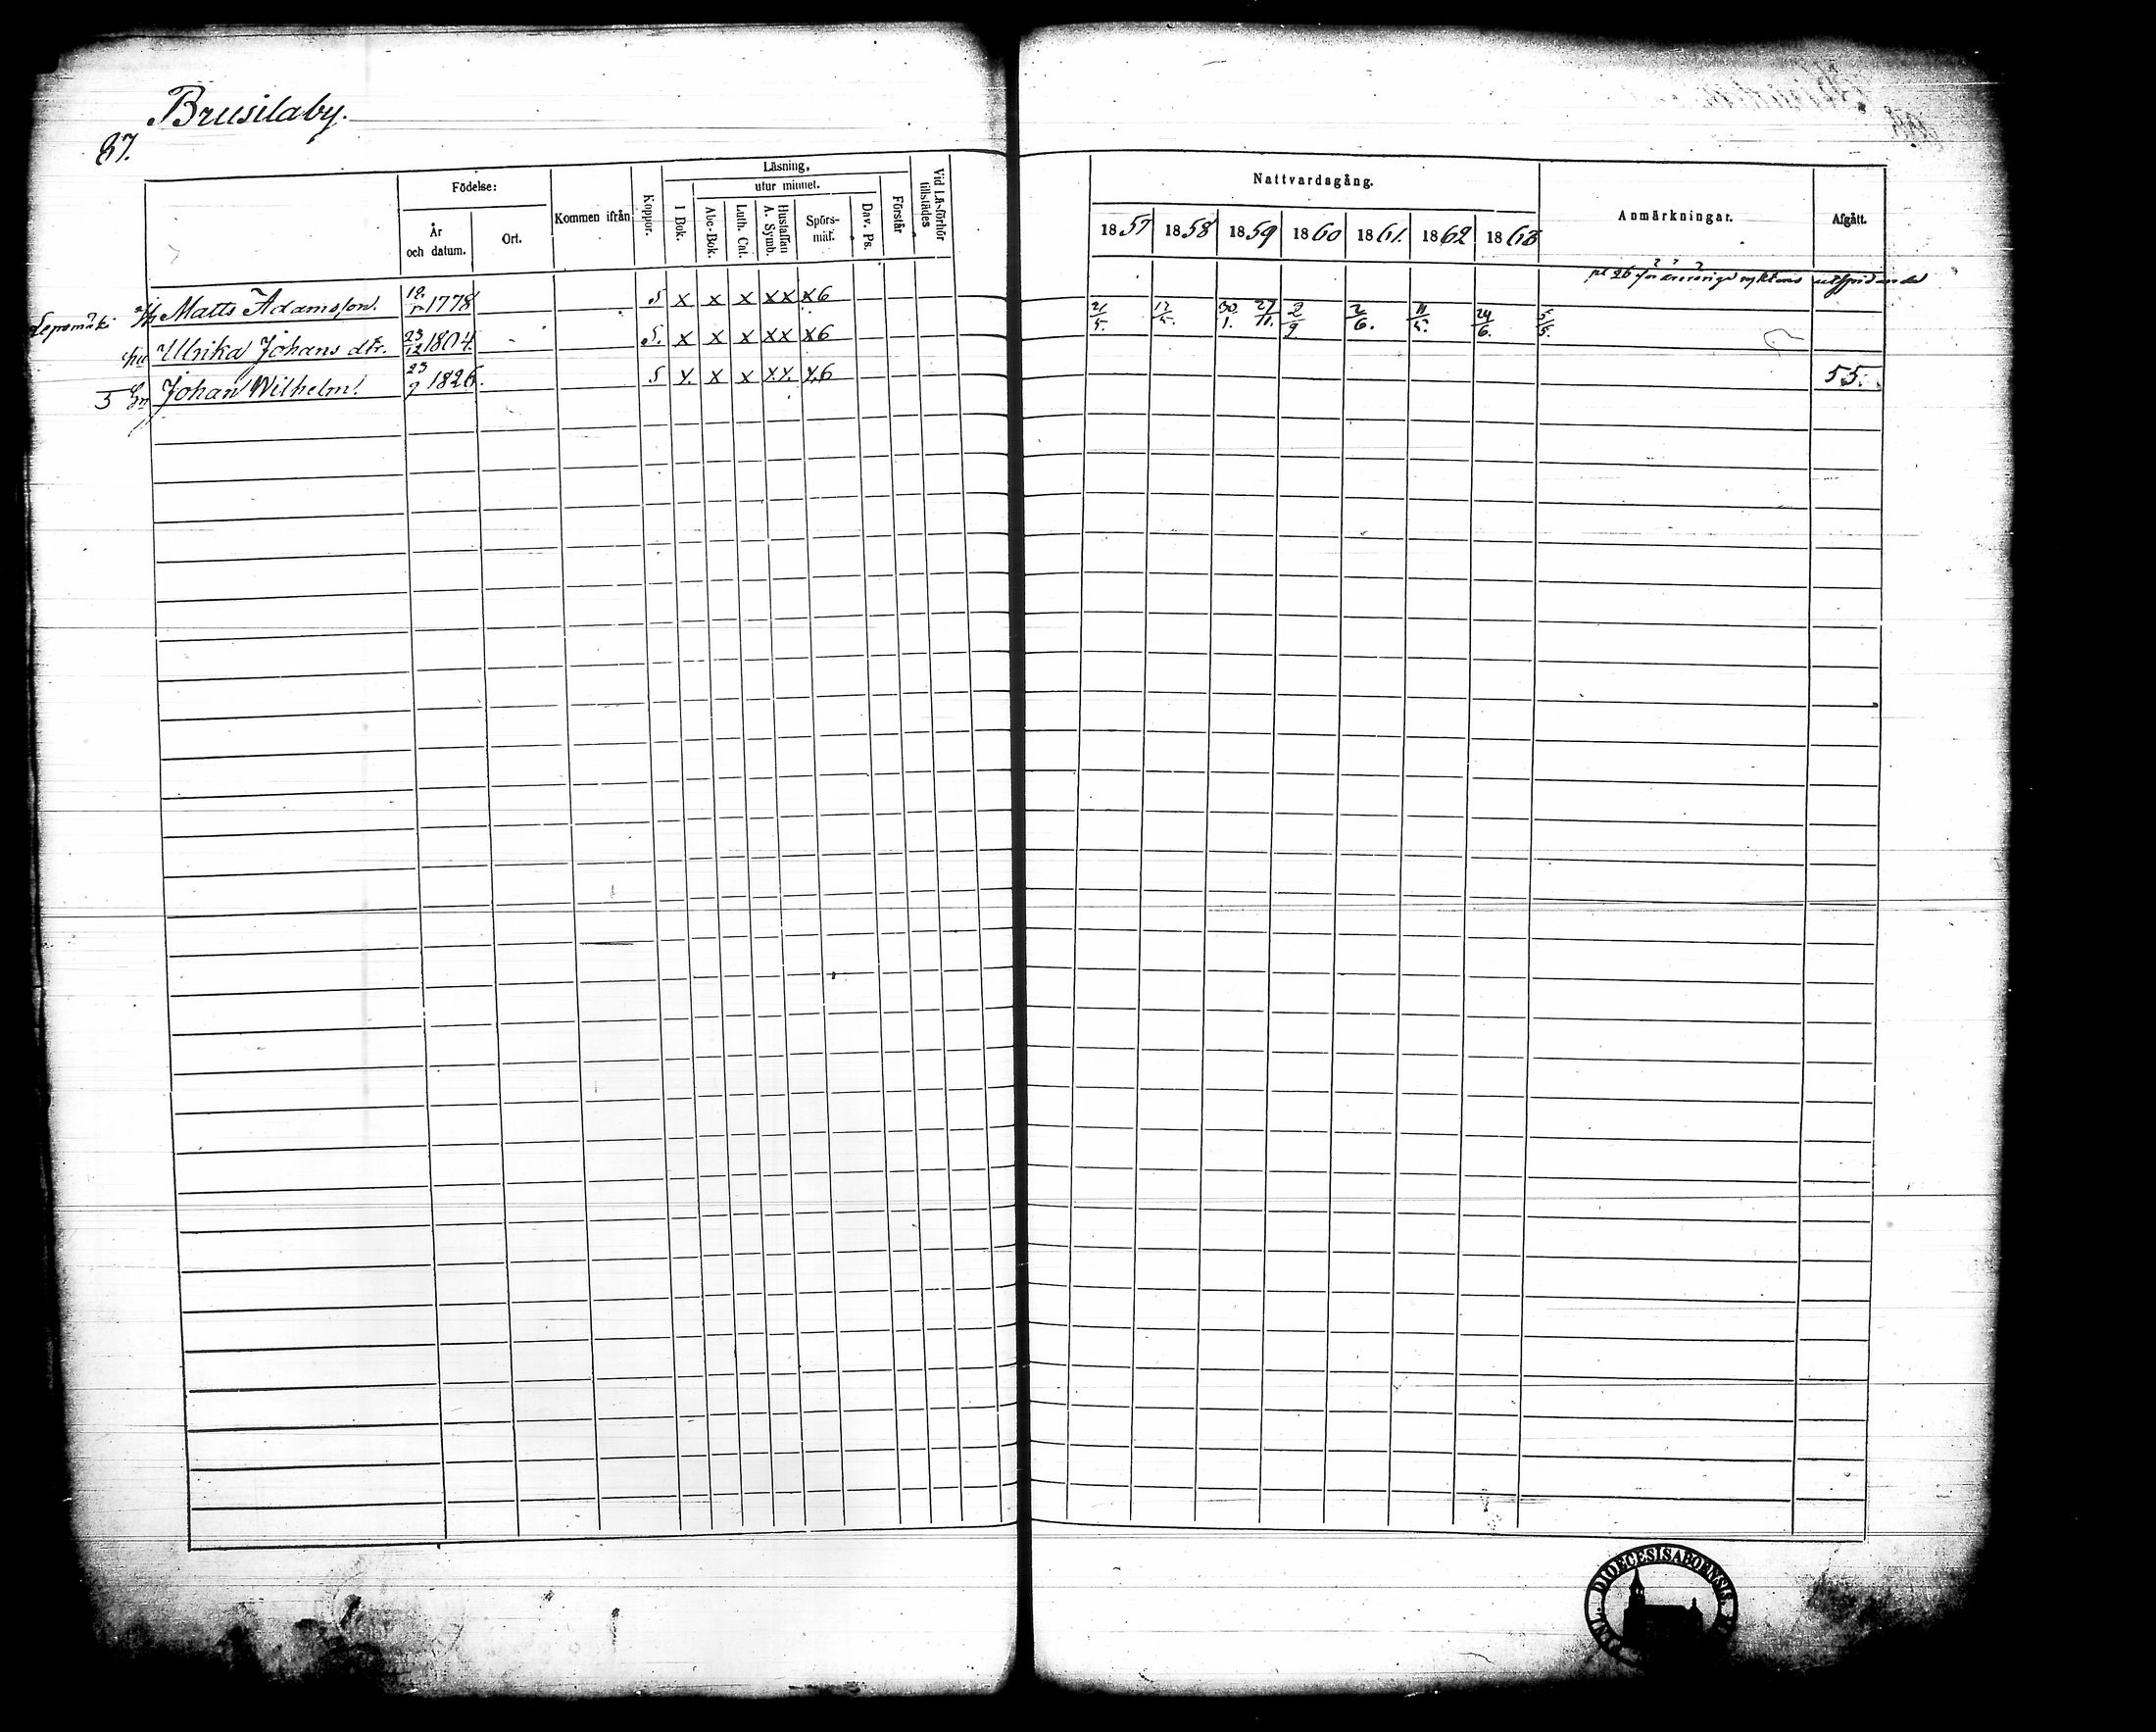 Brusilaby.
87.
Födelse:
År och datum.
Ort.
Kommen ifrån
Koppor.
Läsning,
I Bok.
utur minnet.
Abc-Bok.
Luth. Cat.
Hustaflan A. Symb.
Spörs-mål.
Dav. Ps.
Förstår
Vid Läsförhör tillstädes
Nattvardsgång.
1857 1858 1859 1860 1861. 1862 1863
Anmärkningar.
Afgått.
Matts Adamsson. 1778 5 x x x xx x6
Ulrika Johans dtr. 23/12 1804 5. x x x xx x6 21/5. 30/1. 27/11. 2/9. 2/6. 11/5. 24/6. 5/5.
5 Johan Wilhelm. 23/9 1826. 5 x. x x x.x. x.6 55.
DIOECESIS ABOENSIS